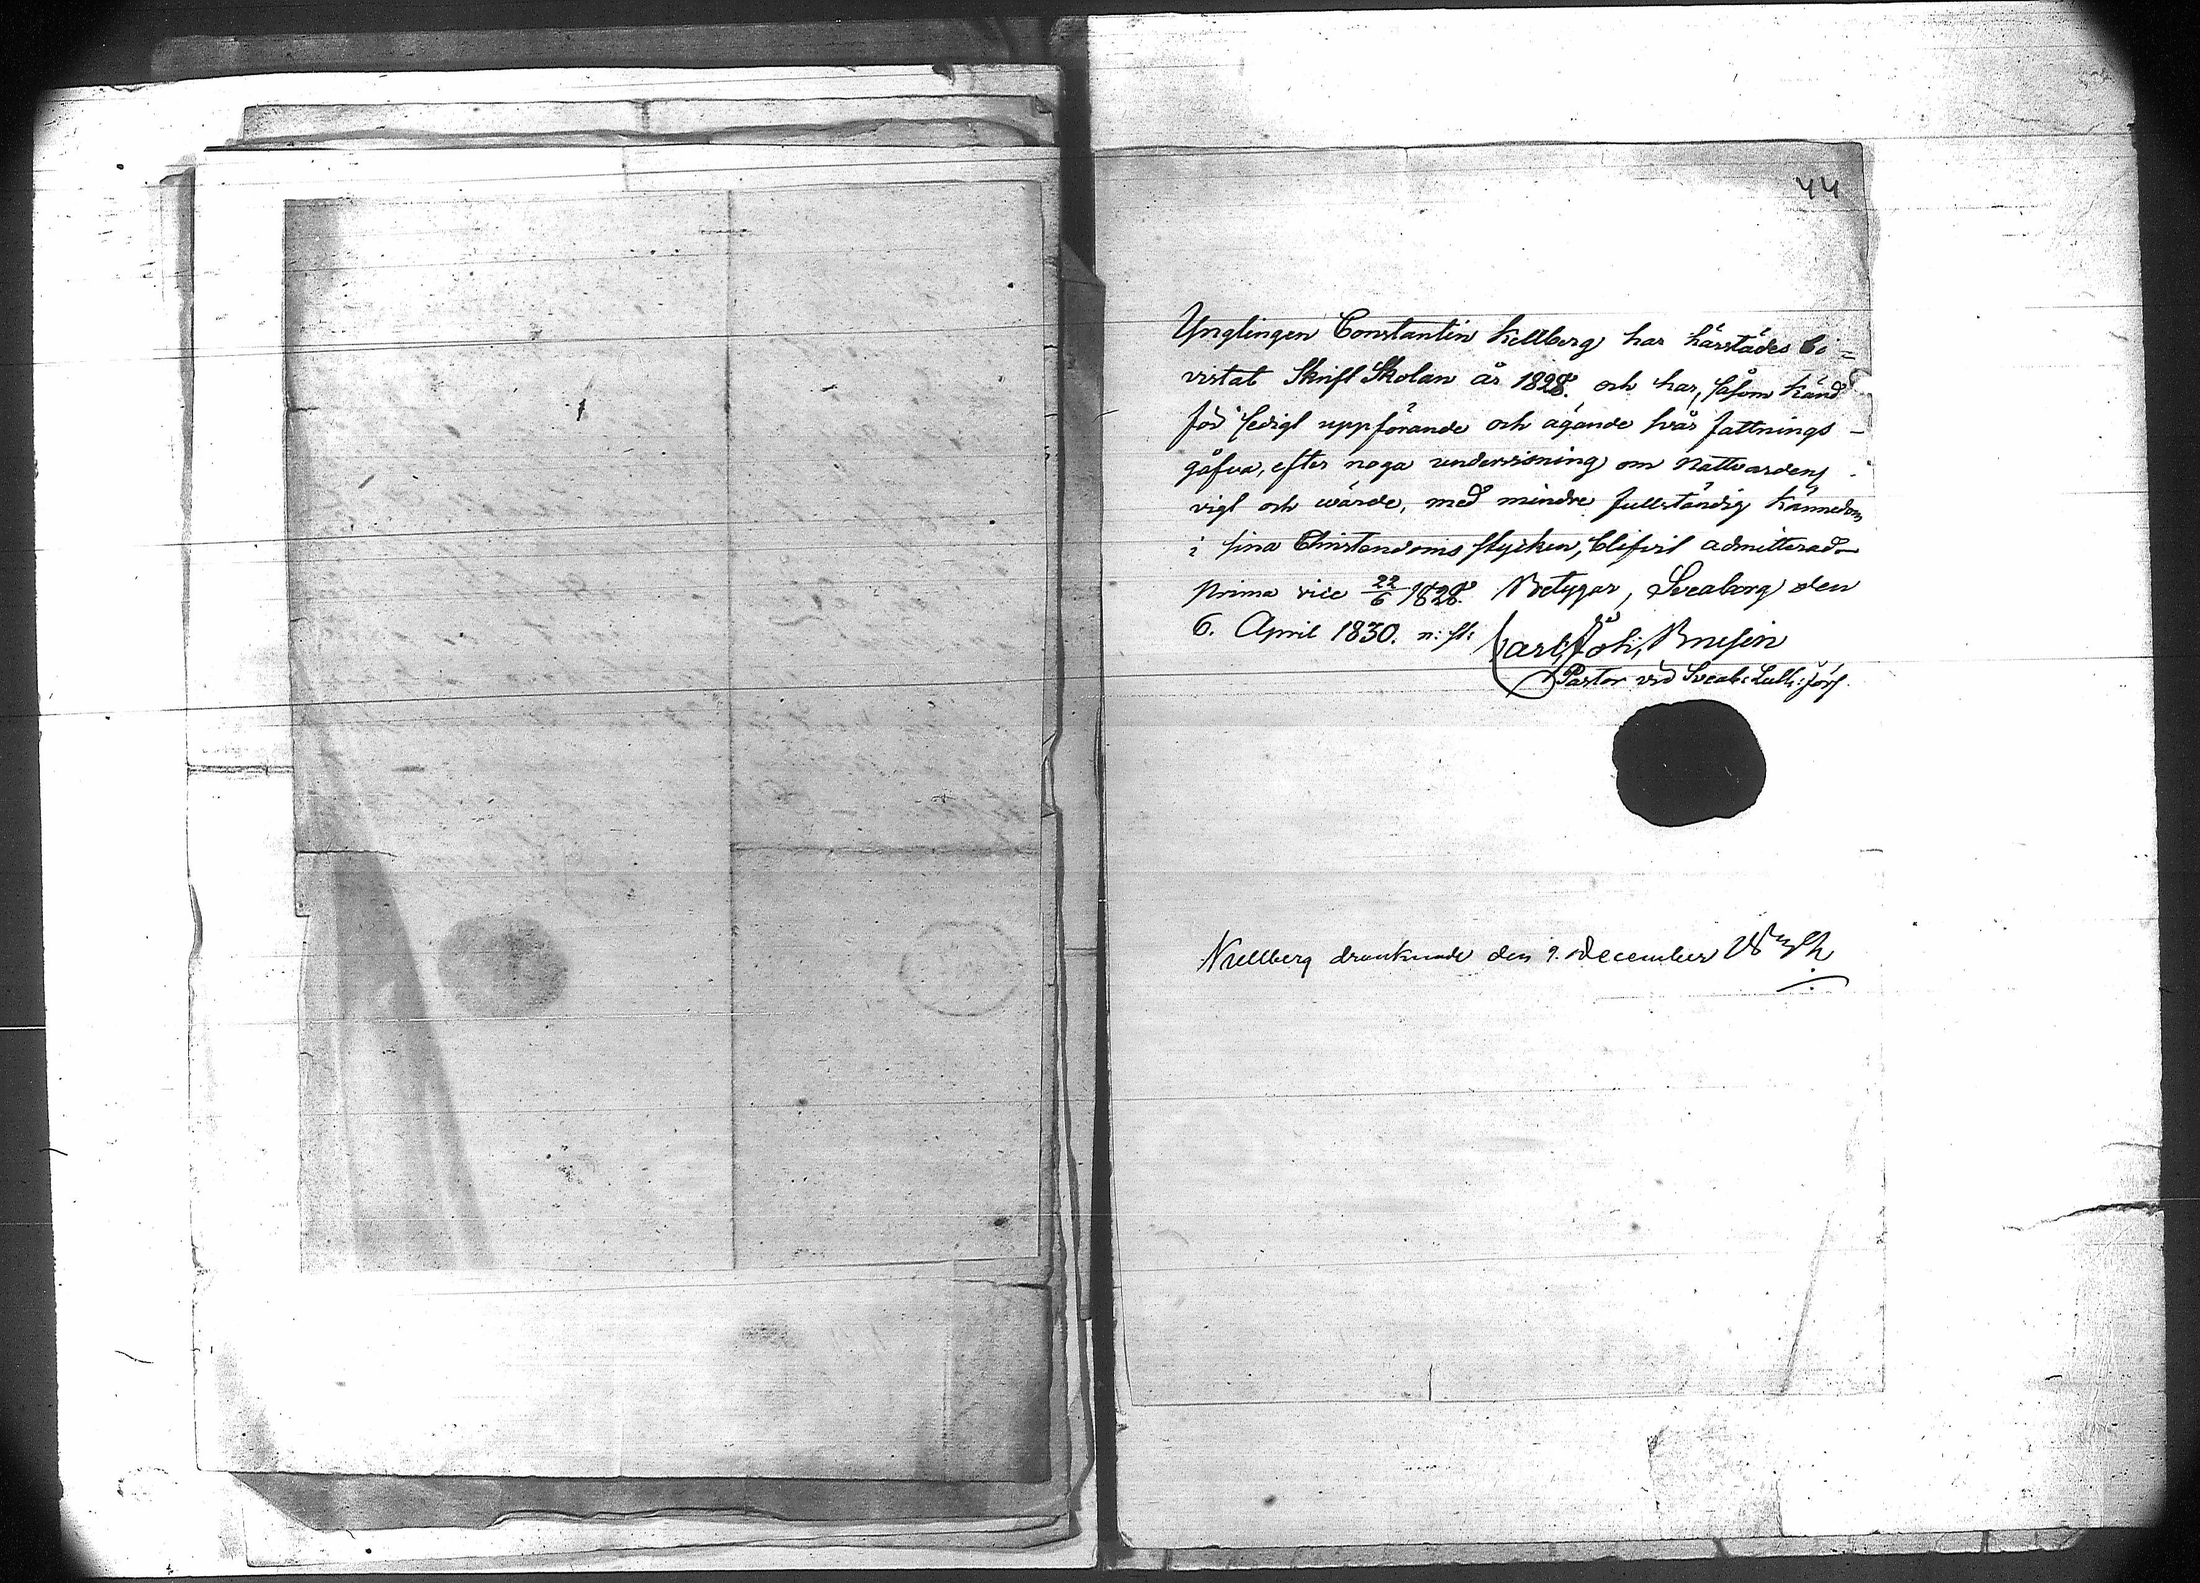 44
Ynglingen Constantin Kellberg har härstädes bi=
vistat Skrift Skolan år 1828. och har, såsom känd
för sedigt uppförande och ägande svår fattnings-
gåfva, efter noga undervisning om Nattvardens
vigt och wärde, med mindre fullständig kännedom
i sina Christendoms stycken, blifvit admitterad
prima vice 22/6 1828. Betygar, Sveaborg den
6. April 1830. n: st:
Carl Joh: 
Pastor vid Sveab: Luth: förs.
drunknade den 9. December